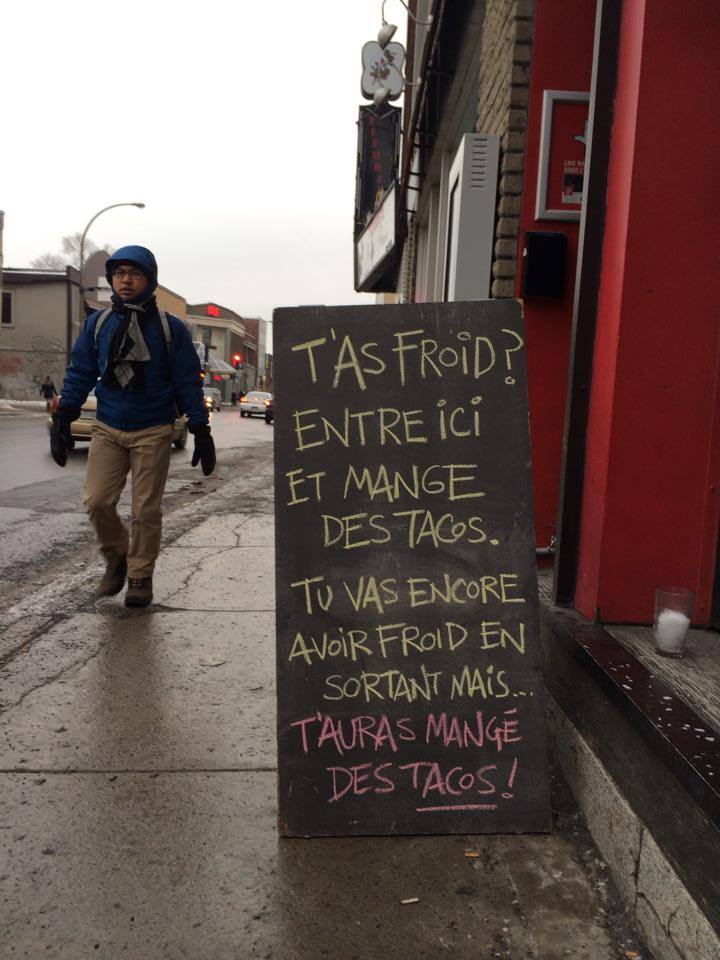 T'AS FROID?
ENTRE ICI
ET MANGE
DES TACOS.
TU VAS ENCORE
AVOIR FROID EN
SORTANT MAIS...
T'AURAS MANGÉ
DES TACOS!